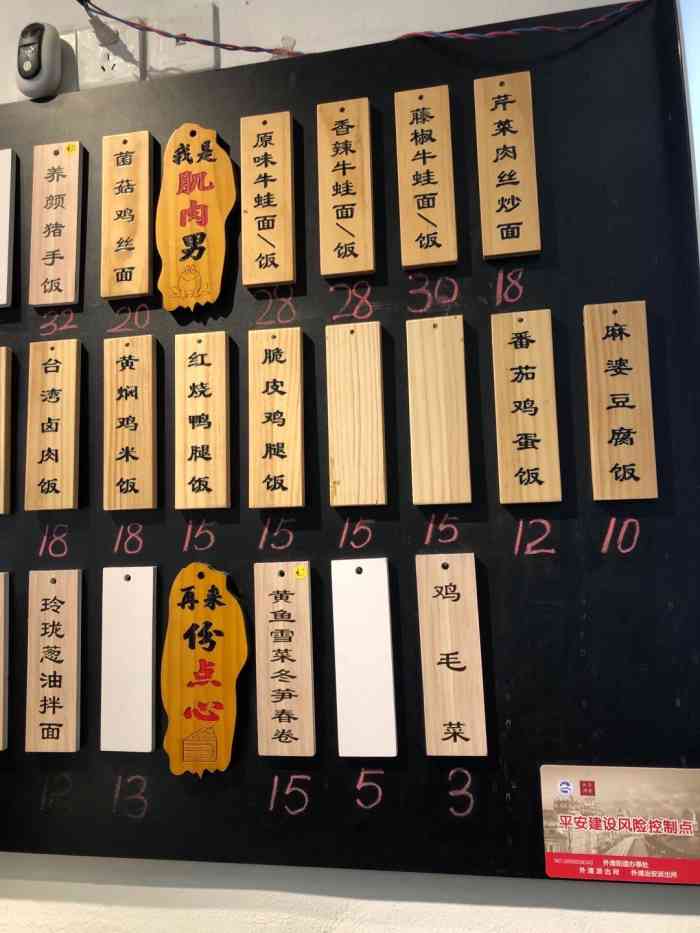 养颜猪手饭
32
菌菇鸡丝面
20
我是
肌肉
男
原味牛蛙面/饭
28
香辣牛蛙面/饭
28
藤椒牛蛙面/饭
30
芹菜肉丝炒面
18
台湾卤肉饭
18
黄焖鸡米饭
18
红烧鸭腿饭
15
脆皮鸡腿饭
15
15
15
番茄鸡蛋饭
12
麻婆豆腐饭
10
玲珑葱油拌面
12
13
再来
份
点
心
黄鱼雪菜冬笋春卷
15
5
鸡毛菜
3
平安建设风险控制点
外滩街道办事处
外滩派出所
外滩治安派出所